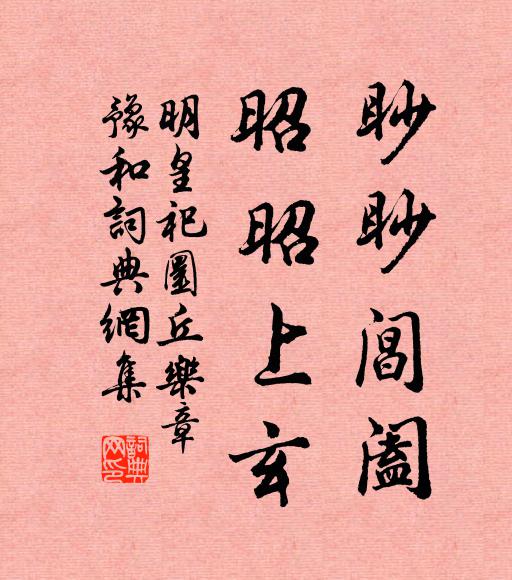 眇眇閶闔
昭昭上玄
明皇祀圜丘樂章
豫和詞典網集
詞典
网印